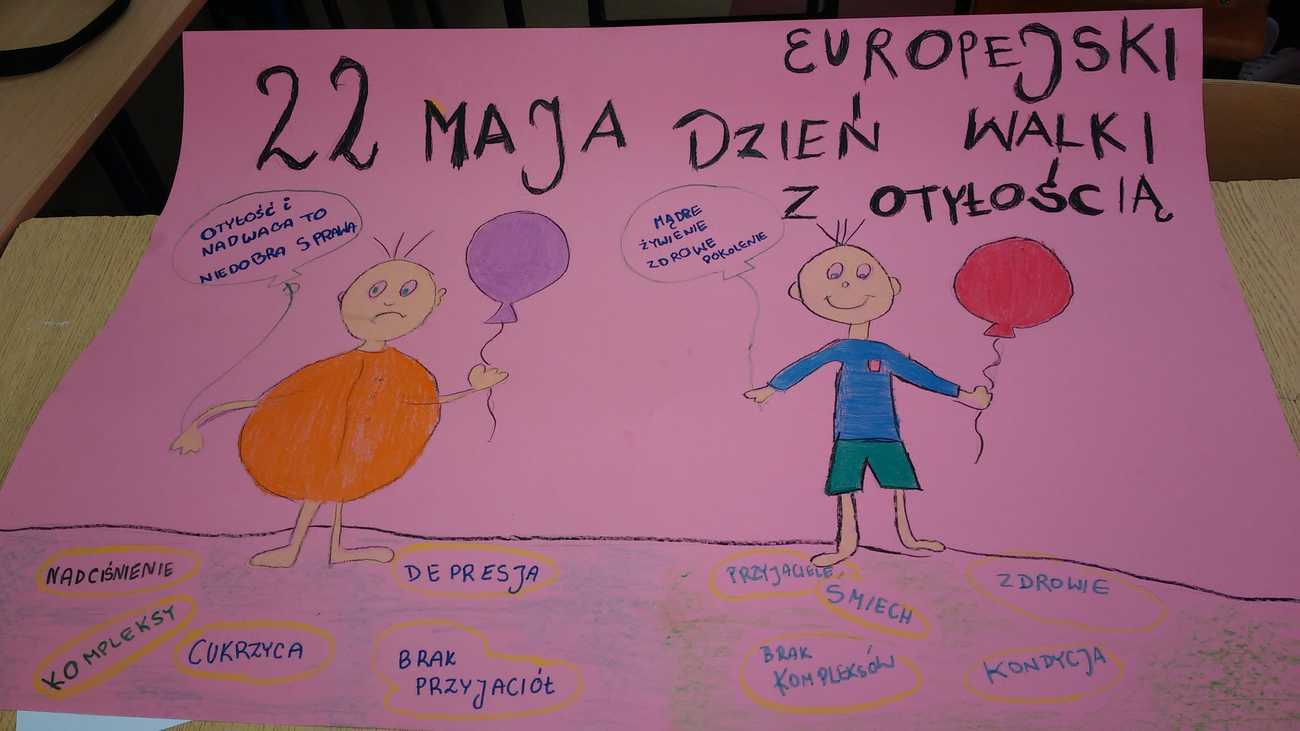 22 MAJA EUROPEJSKI
DZIEŃ WALKI
Z OTYŁOŚCIĄ
OTYŁOŚĆ i
NADWAGA TO
NIEDOBRA SPRAWA
MĄDRE
ŻYWIENIE
ZDROWE
POKOLENIE
NADCIŚNIENIE
DEPRESJA
KOMPLEKSY
CUKRZYCA
BRAK
PRZYJACIÓŁ
PRZYJACIELE
ŚMIECH
ZDROWIE
BRAK
KOMPLEKSÓW
KONDYCJA